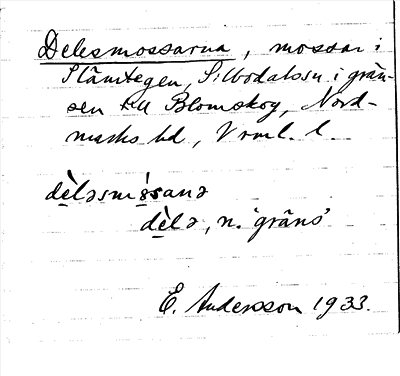 Delesmossarna, mossar i
Slämtegen, Silbodals sn i grän-
sen till Blomskog, Nord-
marks hd, Vrml. l.
dèləsmòssanə
dèlə, n. 'gräns'
E. Andersson 1933.